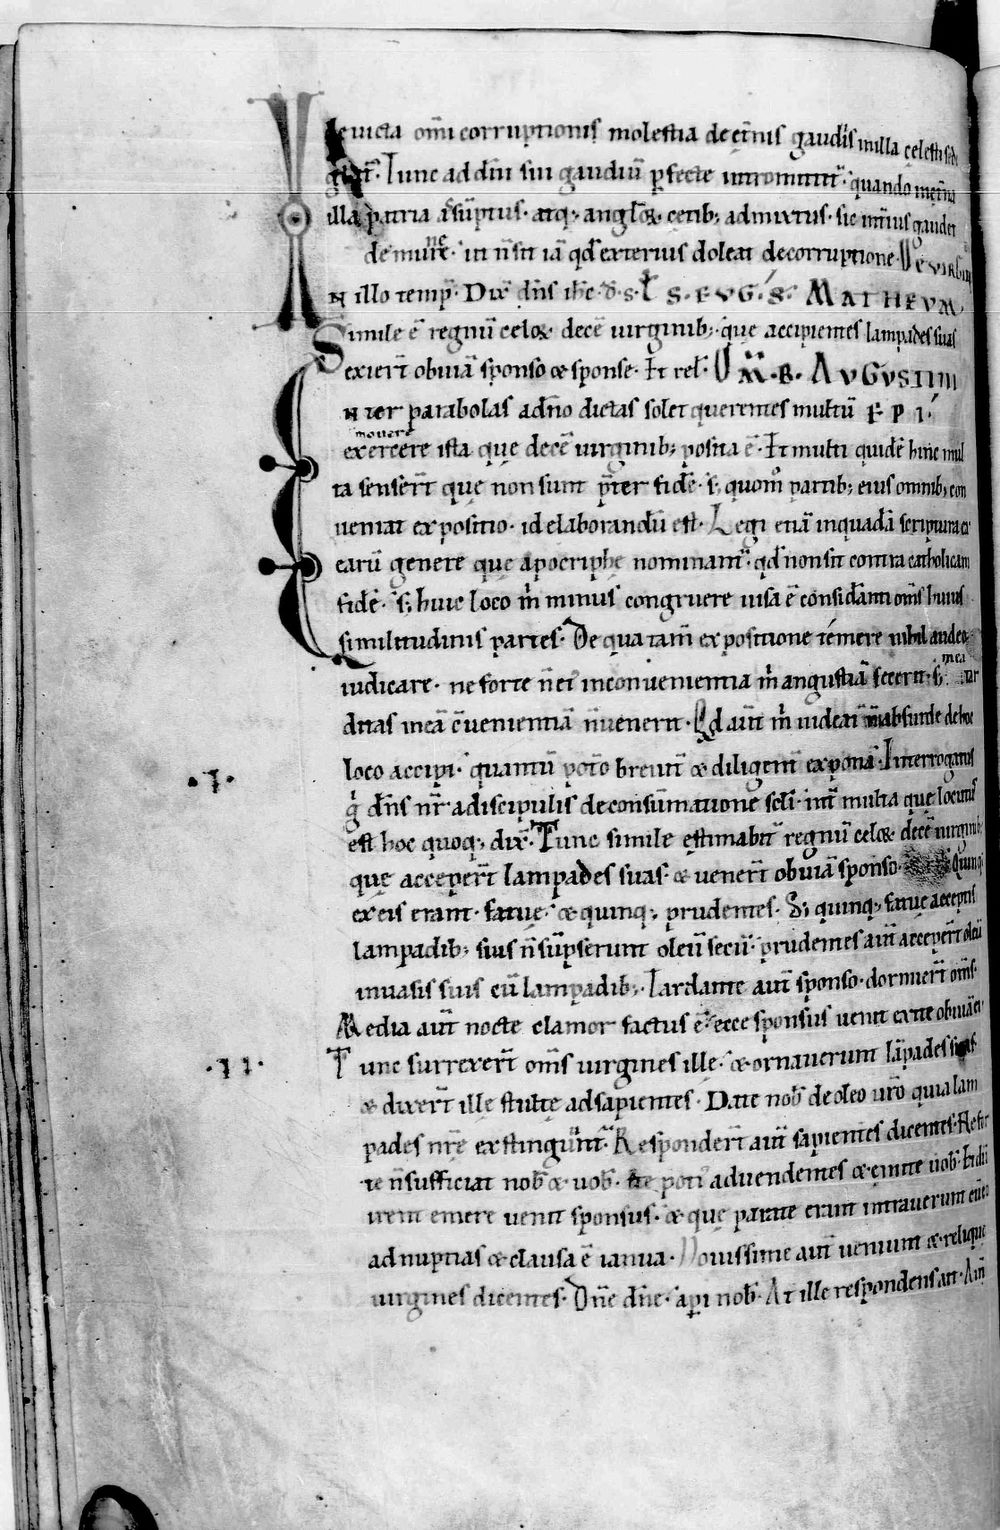 deuicta om̄i corruptionis molestia de et̄nis gaudiis in illa celesti sede
Tunc ad dn̄i sui gaudiū p̱fecte intromittit᷑. quando in et̄na
illa patria assūptus. atq; anglo℞ cetib; admixtus. sic int̄ius gaudet
de munere. ut n̄ sit iā qđ exterius doleat de corruptione. De uirgin
N illo temp̄. Dix̄ dn̄s ih̄c. d. s. S. EUG. S. MATHEUM.
Simile ē regnū celo℞ decē uirginib; que accipientes lampades suas
exiert̄ obuiā sponso & sponse. Et rel. OM̄. B. AUGUSTINI
NTER parabolas a dn̄o dictas solet querentes multū EPI.
mouere
exercere ista que decē uirginib; posita ē. Et multi quidē hinc mul
ta senserт̄ que non sunt p̄ter fidē. s; quom̊ partib; eius omnib; con
ueniat expositio. id elaborandū est. Legi etiā in quadā scriptura ex
earū genere que apocriphe nominant᷑. qđ non sit contra catholicam
fidē. s; huic loco m̄ minus congruere uisa ē considāanti om̄s huius
similitudinis partes. De qua tam̄ expositione temere nihil audeo
iudicare. ne forte n̄ ei᷑ inconuenientia m̄ angustiā fecerit. s; mea tar
ditas in eā c̄uenientiā n̄ uenerit. Qd aut̄ m̄ uideat᷑ n̄ absurde de hoc
loco accipi. quantū potō breuit̄ & diligent̄ exponā. Interrogatus
g̊ dn̄s nr̄ a discipulis de consūmatione scl̄i. int̄ multa que locutus
est hoc quoq; dix̄. Tunc simile estimabit᷑ regnū celo℞ decē uirginib;
que acceper̄t lampades suas. & uener̄t obuiā sponso. Quinq;
ex eis erant fatue. & quinq; prudentes. S; quinq; fatue acceptis
lampadib; suis n̄ sūpserunt oleū secū. prudentes aut̄ acceper̄t oleū
in uasis suis cū lampadib;. Tardante aut̄ sponso. dormier̄t om̄s.
Media aut̄ nocte clamor factus ē. ecce sponsus uenit exite obuiā ei.
.I.
Tunc surrexer̄t om̄s uirgines ille. & ornauerunt lāpades suas
.II.
& dixer̄t ille stulte ad sapientes. Date nob̄ de oleo ur̄o quia lam
pades nr̄e extingunt᷑. Responder̄t aut̄ sapientes dicentes. Ne for
te n̄ sufficiat nob̄ & uob̄. ite poti᷑ ad uendentes & emite uob̄. Et dū
irent emere uenit sponsus. & que parate erant intrauerunt cū eo
ad nuptias & clausa ē ianua. Nouissime aut̄ uenerunt & relique
uirgines dicentes. Dn̄e dn̄e. ap̱i nob̄. At ille respondens ait. Am̄